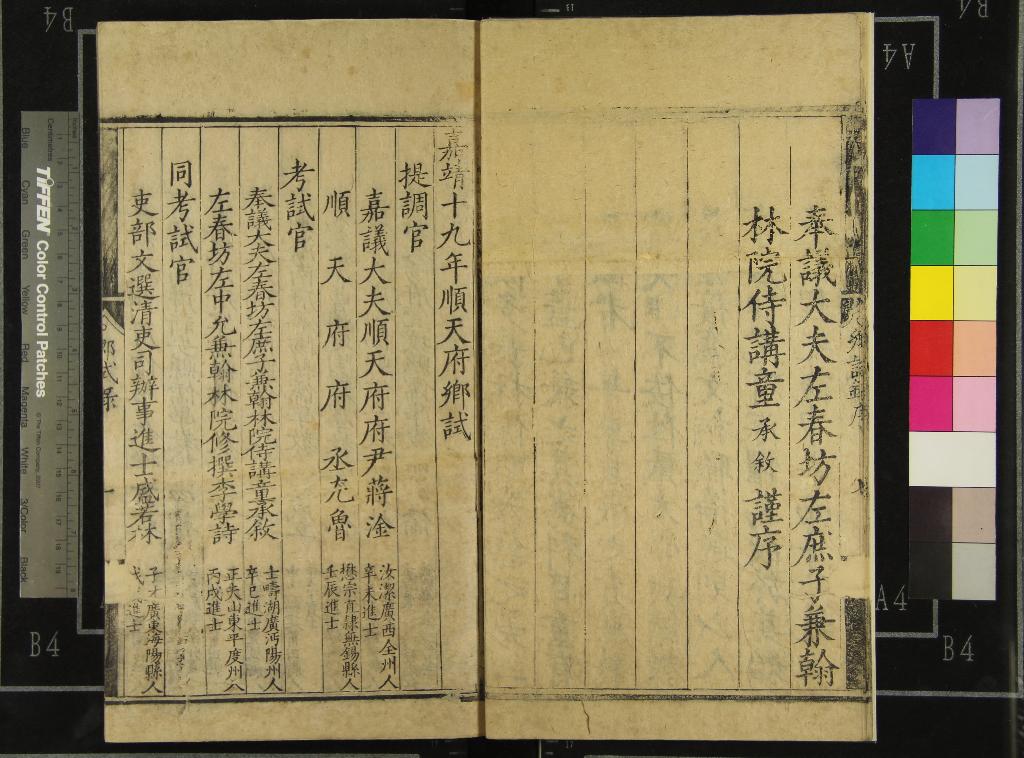 奉議大夫左春坊左庶子兼翰
林院侍講童承敘謹序
嘉靖十九年順天府鄉試
提調官
嘉議大夫順天府府尹蔣淦
汝潔廣西全州人
辛未進士
順天府府丞
魯
懋宗直隸無錫縣人
壬辰進士
考試官
奉議大夫左春坊左庶子兼翰林院侍講童承敘
士疇湖廣沔陽州人
辛巳進士
左春坊左中允兼翰林院修撰李學詩
正夫山東平度州人
丙戌進士
同考試官
吏部文選清吏司辦事進士盛若林
子 廣東海陽縣人
戌進士
鄉試錄
一
TIFFEN Color Control Patches
© The Tiffen Company, 2007
Centimetres
Inches
Blue
Cyan
Green
Yellow
Red
Magenta
White
3/Color
Black
B4
B4
A4
A4
B4
B4